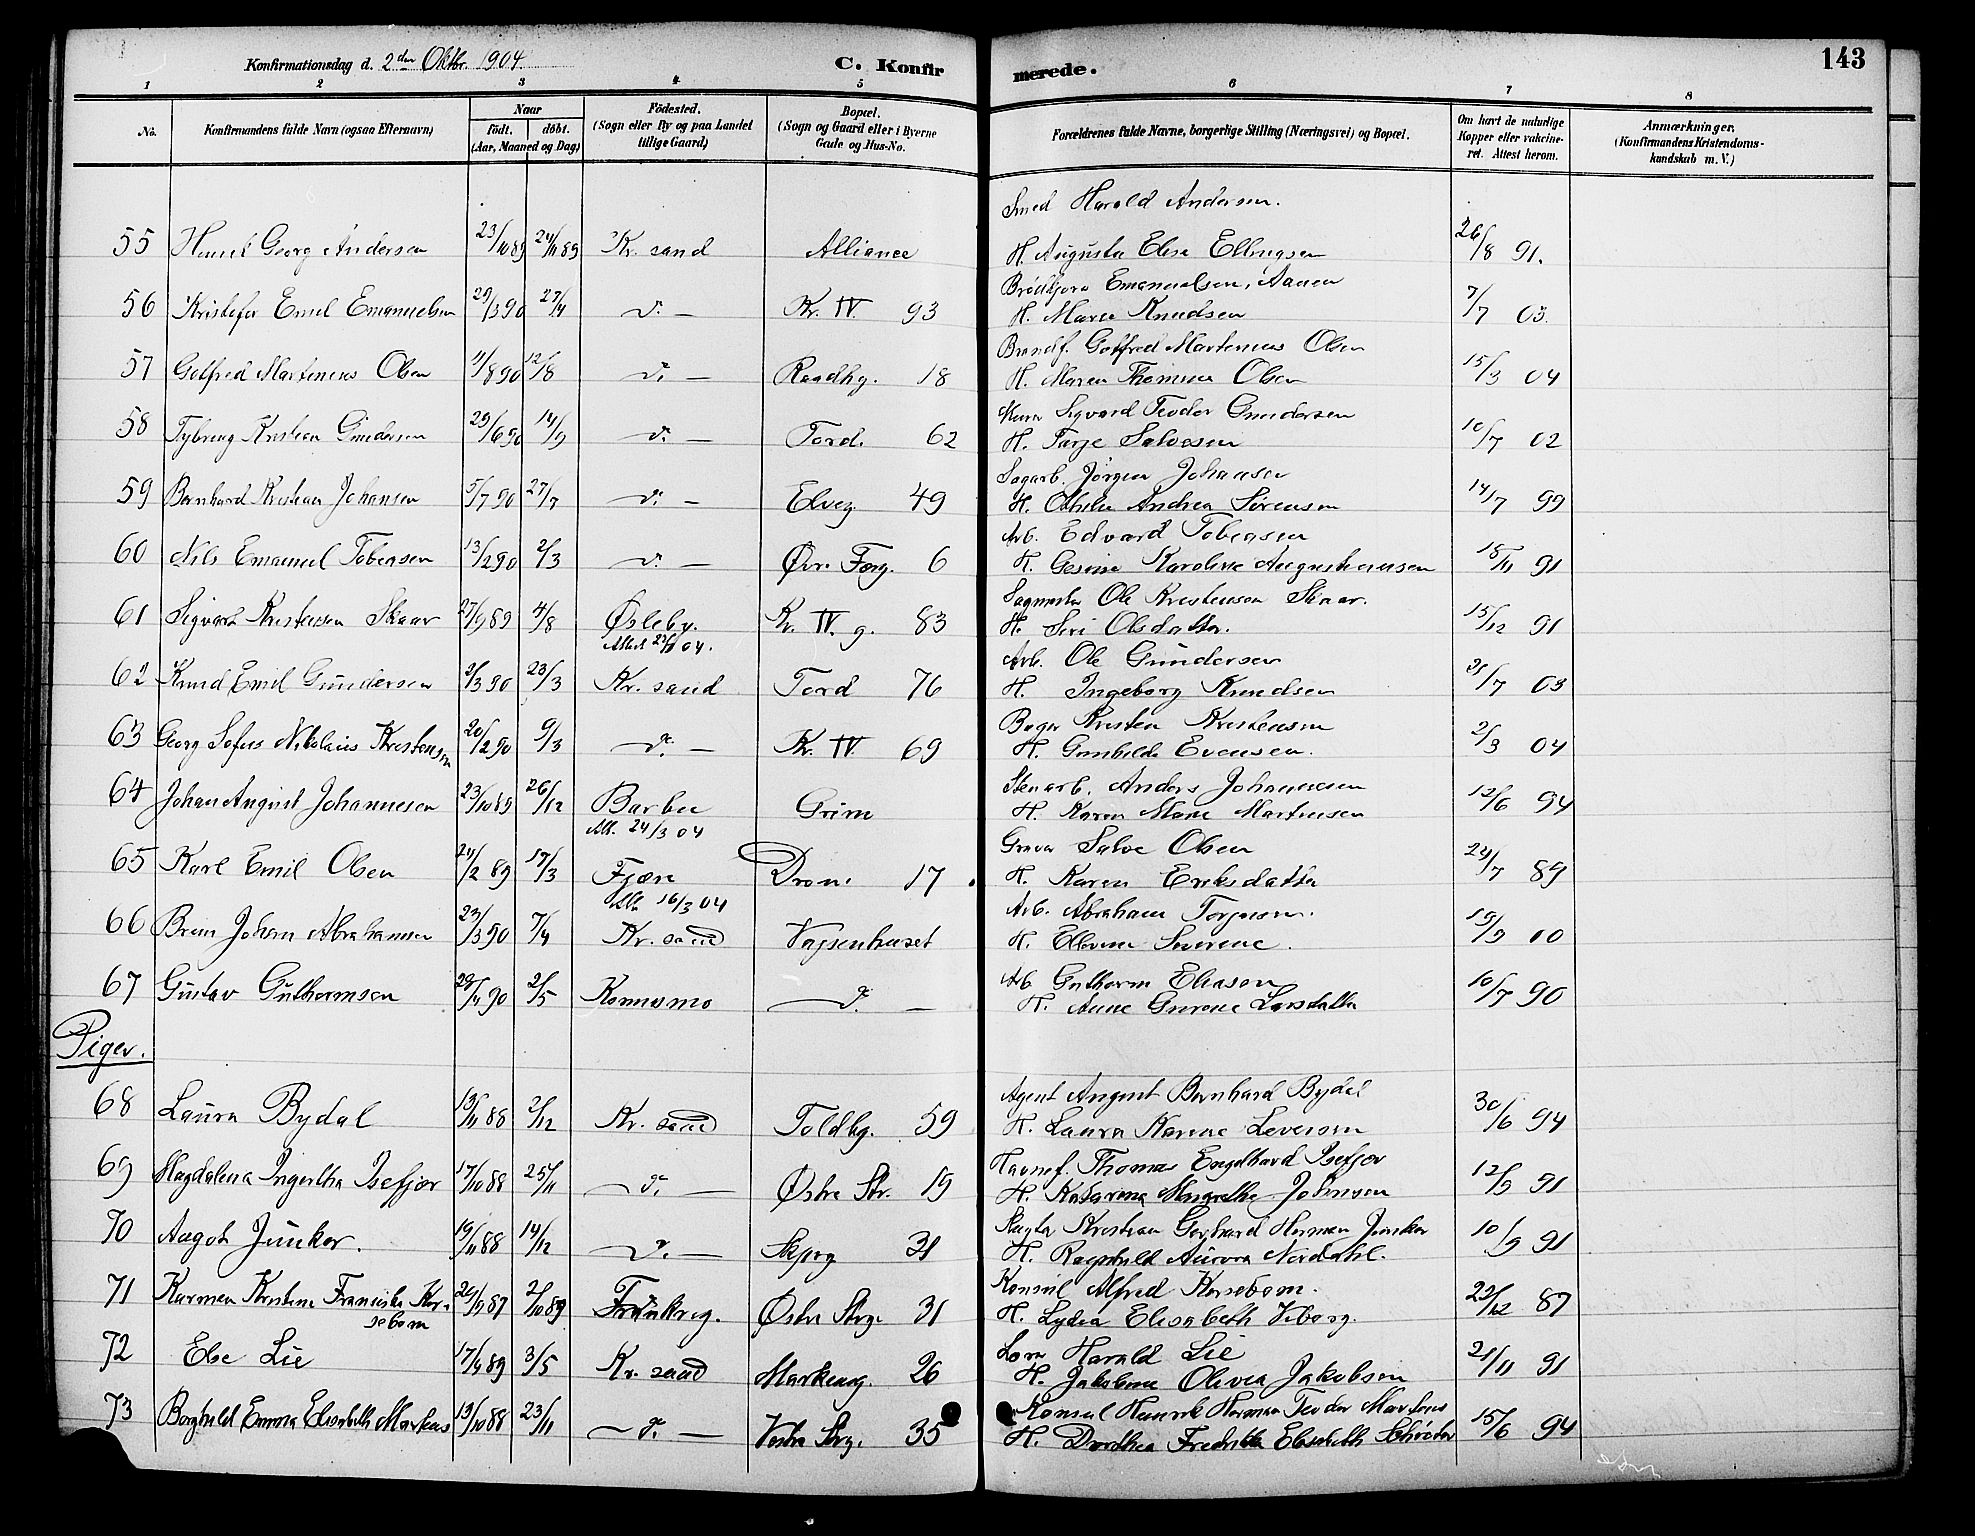 Konfirmationsdag d. 2den Oktbr. 1904.
C. Konfirmerede.
143
1 2 3 4 5 6 7 8
No. Konfirmandens fulde Navn (ogsaa Efternavn) Naar födt. döbt. (Aar, Maaned og Dag) Födested. (Sogn eller By og paa Landet tillige Gaard) Bopæl. (Sogn og Gaard eller i Byerne Gade og Hus-No. Forældrenes fulde Navne, borgerlige Stilling (Næringsvei) og Bopæl. Om havt de naturlige Kopper eller vakcineret. Attest herom. Anmærkninger. (Konfirmandens Kristendomskundskab m. V.)
Smed Harald Andersen.
55 Henrik Georg Andersen 23/10 89 24/11 89 Kr. sand Alliance H. Augusta Elise Ellingsen 26/8 91.
Emanuelsen, Aanen
56 Kristofer Emil Emanuelsen 29/3 90 27/4 do — Kr. IV 93 H. Marie Knudsen 7/7 03
Brandf. Gotfred Martenius Olsen
57 Gotfred Martenius Olsen 4/8 90 12/8 do — Raadhg. 18 H. Maren Thomine Olsen 15/3 04
Murer Sigvard Teodor Gundersen
58 Tybring Kristian Gundersen 29/6 90 14/9 do — Tord. 62 H. Tarje Salvesen 10/7 02
Sagarb. Jørgen Johansen
59 Bernhard Kristian Johansen 5/7 90 27/7 do — Elveg. 49 H. Othilie Andrea Sørensen 14/7 99
Arb. Edvard Tobiasen
60 Nils Emanuel Tobiasen 13/2 90 2/3 do — Øvr. Torg. 6 H. Gesine Karoline Augustinussen 18/11 91
Sagmester Ole Kristensen Skaar.
61 Sigvard Kristensen Skaar 27/9 89 4/8 Kr. IV. g. 83 H. Siri Olsdatter. 15/12 91
Arb. Ole Gundersen
62 Knud Emil Gundersen 2/3 90 23/3 Kr. sand Tord 76 H. Ingeborg Knudsen 21/7 03
Bager Kristen Kristensen
63 Georg Sofus Nikolaus Kristensen 20/2 90 9/3 do — Kr. IV 69 H. Gunhilde Evensen. 2/3 04
Stenarb. Anders Johannesen
64 Johan August Johannesen 23/10 89 26/12 Barbu Grim H. Karen Marie Martinsen 12/6 94
Att. 24/3 04
Graver Salve Olsen
65 Karl Emil Olsen 24/2 89 17/3 Fjære Dron. 17 H. Karen Eriksdatter 24/7 89
Att. 16/3 04
Arb. Abraham Torjusen.
66 Brun Johan Abrahamsen 23/3 90 7/4 Kr. sand Vajsenhuset H. Ellevine Severine. 19/9 00
Arb. Guthorm Eliasen
67 Gustav Guthormsen 28/4 90 2/5 Konnsmo do — H. Anne Gurene Larsdatter 10/7 90
Piger.
Agent August Bernhard Bydal
68 Laura Bydal 13/11 88 2/12 Kr. sand Toldbg. 59 H. Laura Karine Levorsen 30/6 94
Havnef. Thomas Engelhard Isefjær
69 Magdalena Ingertha Isefjær 17/10 88 25/11 do — Østre Str. 19 H. Katarina Margrethe Johnsen 12/9 91
Kristian Gerhard Herman Junker
70 Aagot Junker. 19/11 88 14/12 do — Skjerg 31 H. Ragnhild Aurora Nordahl. 10/9 91
Konsul Alfred Korsebom.
71 Karmen Kristine Franciska Korsebom 20/9 87 2/10 89 Frankrig. Østre Strg. 31 H. Lydia Elisabeth Viborg. 29/12 87
Harald Lie
72 Else Lie 17/4 89 3/5 Kr. sand Markensg. 26 H. Jakobine Olivia Jakobsen 21/11 91
Konsul Henrik Herman Teodor Martens
73 Borghild Emma Elisabeth Martens 19/10 88 23/11 do — Vestre Strg. 35 H. Dorthea Fredrikke Elisabeth Schrøder 15/6 94